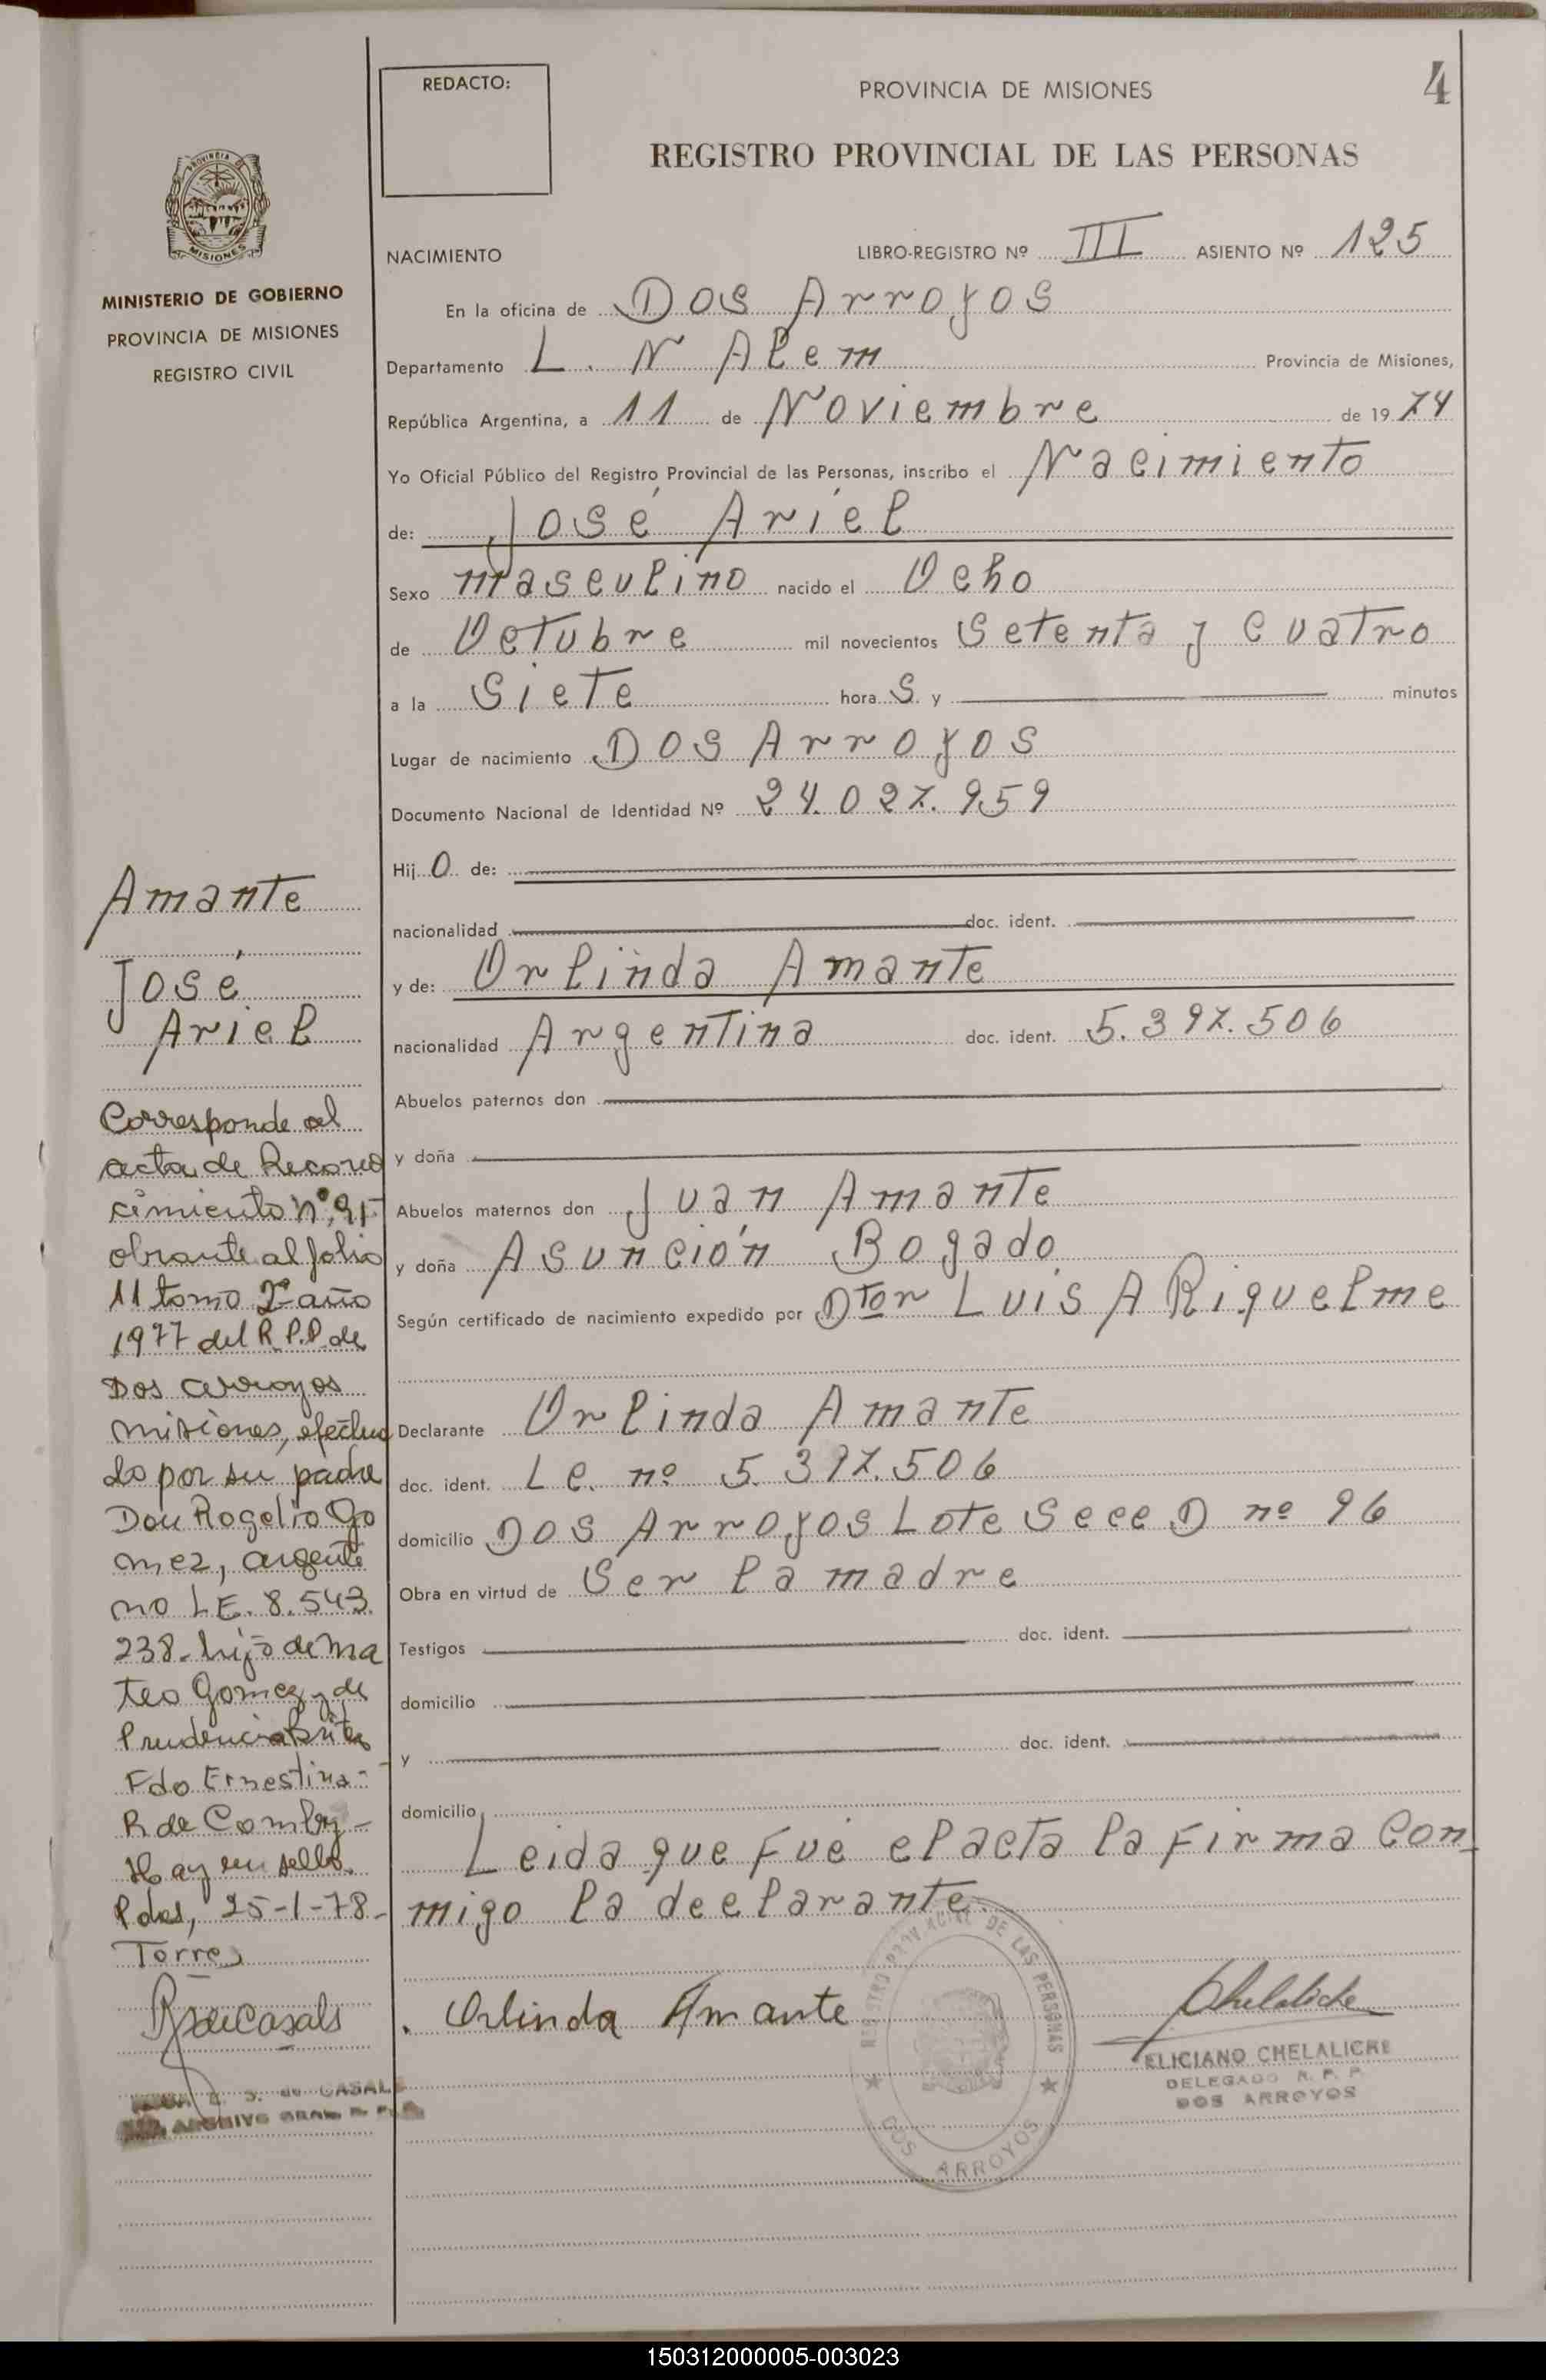 REDACTO:
PROVINCIA DE MISIONES
4
REGISTRO PROVINCIAL DE LAS PERSONAS
PROVINCIA DE
MISIONES
MINISTERIO DE GOBIERNO
PROVINCIA DE MISIONES
REGISTRO CIVIL
NACIMIENTO LIBRO-REGISTRO Nº III ASIENTO Nº 125
En la oficina de Dos Arroyos
Departamento L. N Alem Provincia de Misiones,
República Argentina, a 11 de Noviembre de 1974
Yo Oficial Público del Registro Provincial de las Personas, inscribo el Nacimiento
de: José Ariel
Sexo masculino nacido el Ocho
de Octubre mil novecientos Setenta y Cuatro
a la Siete hora S. y minutos
Lugar de nacimiento Dos Arroyos
Documento Nacional de Identidad Nº 24.027.959
Hij O de:
nacionalidad doc. ident.
y de: Orlinda Amante
nacionalidad Argentina doc. ident. 5.397.506
Abuelos paternos don
y doña
Abuelos maternos don Juan Amante
y doña Asunción Bogado
Según certificado de nacimiento expedido por Dtor Luis A Riquelme
Declarante Orlinda Amante
doc. ident. L C. nº 5.397.506
domicilio Dos Arroyos Lote Secc D nº 96
Obra en virtud de Ser la madre
Testigos doc. ident.
domicilio
y doc. ident.
domicilio
Leida que Fué el acta la Firma Con_
migo la declarante.
Orlinda Amante
REGISTRO PROVINCIAL DE LAS PERSONAS
DOS ARROYOS
Chelaliche
FELICIANO CHELALICHE
DELEGADO R. P. P.
DOS ARROYOS
Amante
José
Ariel
Corresponde al
acta de Recono
cimiento nº 91-
obrante al folio
11 tomo 2º año
1977 del R.P.P. de
Dos arroyos
misiones, efectua
do por su padre
Don Rogelio Go
mez, argenti
no L.E. 8.543.
238- hijo de Ma
teo Gomez y de
Prudencia Britez
Fdo Ernestina-
R de Comby-
Hay un sello.
Pdas, 25-1-78-
Torres
de Casals
S. de CASALS
ARCHIVO GRAL R. P. P.
150312000005-003023